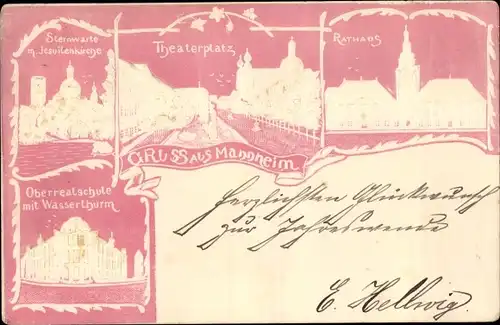 Sternwarte
m. Jesuitenkirche
Theaterplatz
RATHAUS
GRUSS AUS Mannheim
Oberrealschule
mit Wasserthurm
Herzlichsten Glückwunsch
zur Jahreswende
E. Hellwig.